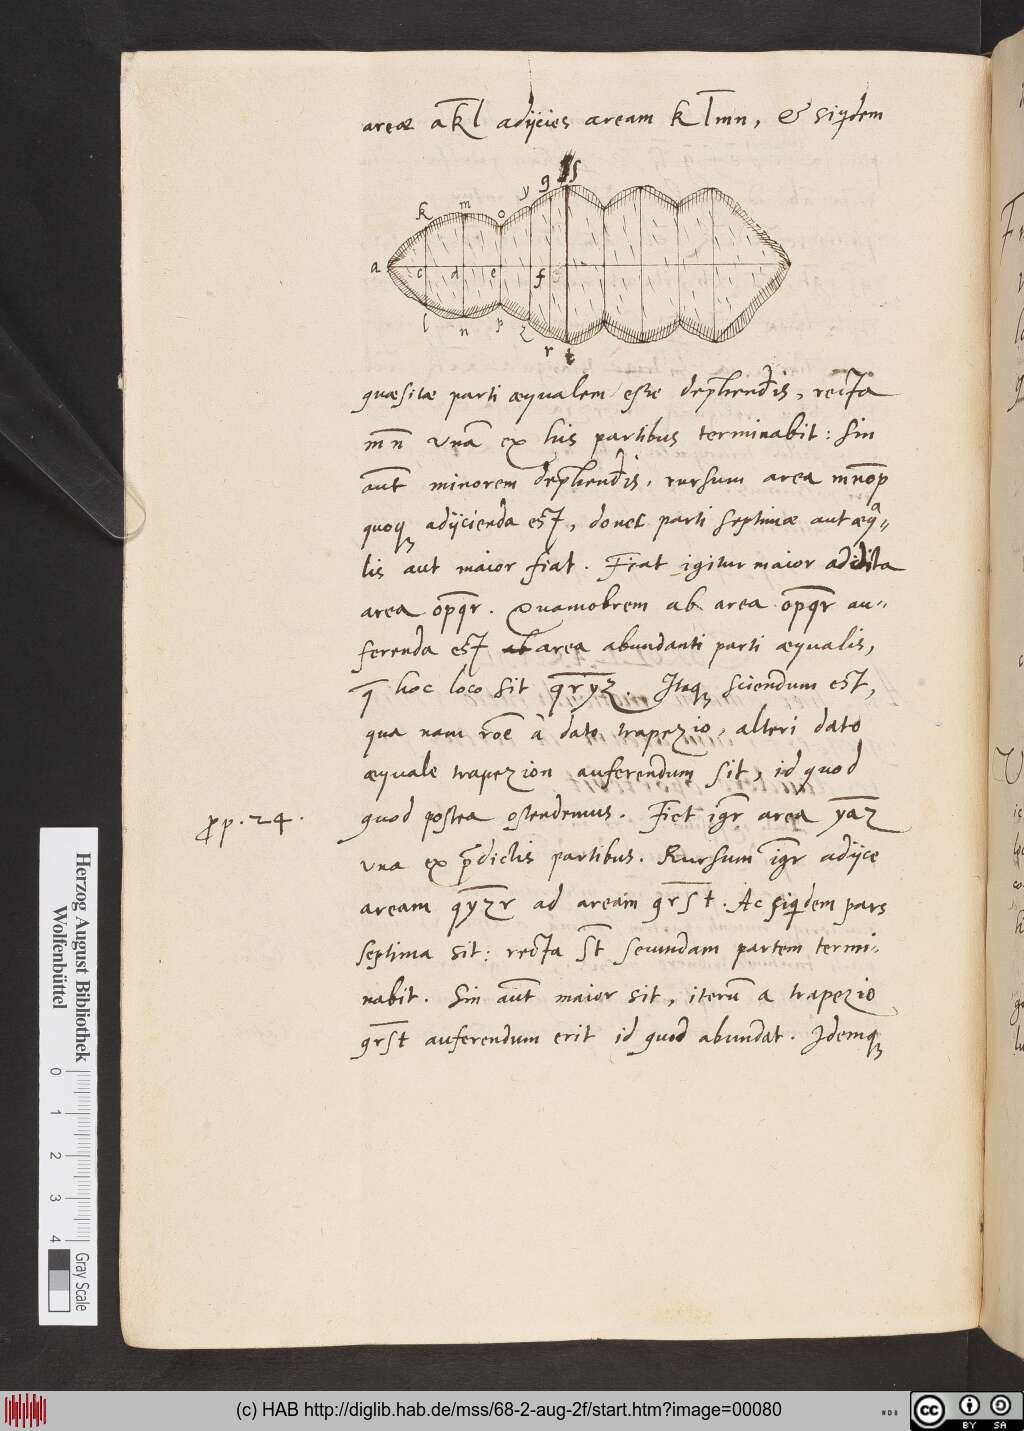 areæ akl adijcies aream klmn, & siqdem
k m o y g s
a c d e f
l n p z r t
quæsitæ parti æqualem esse dephendis, recta
mn̄ vnā ex his partibus terminabit: Sin
aūt minorem dephendis, rursum area mnop
quoq adijcienda est, donec parti septimæ aut æqᵃ=
lis aut maior fiat. Fiat igitur maior addita
area opqr. Quamobrem ab area opqr au=
ferenda est area abundanti parti æqualis,
q̄ hoc loco sit qryz. Itaq sciendum est,
qua nam rōe à dato trapezio, alteri dato
æquale trapezion auferendum sit, id quod
quod postea ostendemus. Fiet igr area yaz
pp. 24.
vna ex p̄dictis partibus. Rursum igr adijce
aream qyzr ad aream qrst. Ac siqdem pars
septima sit: recta st secundam partem termi=
nabit. Sin aūt maior sit, iterū a trapezio
qrst auferendum erit id quod abundat. Idemq
Herzog August Bibliothek
Wolfenbüttel
0 1 2 3 4
Gray Scale
(c) HAB http://diglib.hab.de/mss/68-2-aug-2f/start.htm?image=00080
cc BY SA